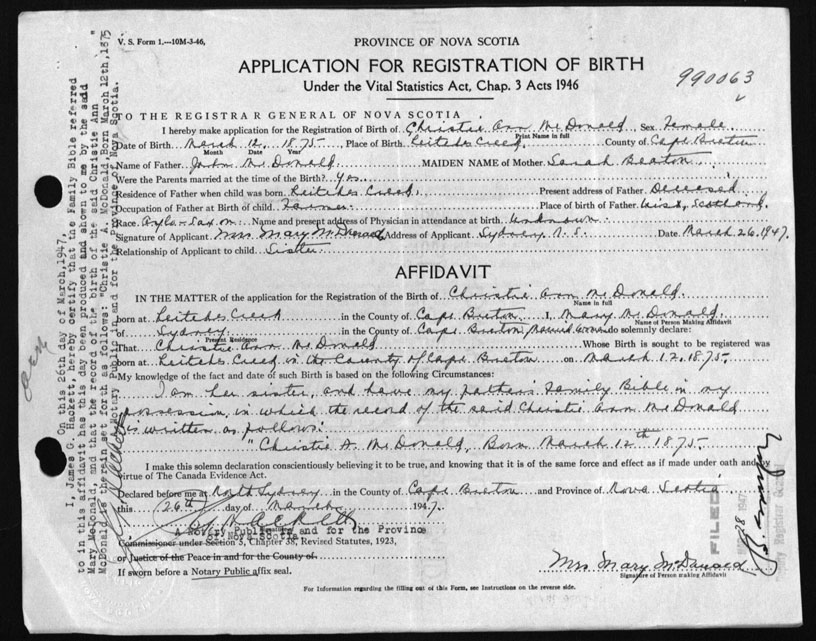 V. S. Form 1.—10M-3-46,
PROVINCE OF NOVA SCOTIA
APPLICATION FOR REGISTRATION OF BIRTH
990063
Under the Vital Statistics Act, Chap. 3 Acts 1946
TO THE REGISTRAR GENERAL OF NOVA SCOTIA
I hereby make application for the Registration of Birth of Christie Ann McDonald Sex Female
Print Name in full
Date of Birth March 12, 1875 Place of Birth Leitches Creek County of Cape Breton
Month Year
Name of Father John McDonald MAIDEN NAME of Mother Sarah Beaton
Were the Parents married at the time of the Birth? Yes
Residence of Father when child was born Leitches Creek Present address of Father Deceased
Occupation of Father at Birth of child Farmer Place of Birth of father Uist, Scotland
Race Anglo-Saxon Name and present address of Physician in attendance at birth Unknown
Signature of Applicant Mrs Mary McDonald Address of Applicant Sydney N.S. Date March 26, 1947.
Relationship of Applicant to child Sister
AFFIDAVIT
IN THE MATTER of the application for the Registration of Birth of Christie Ann McDonald
Name in full
born at Leitches Creek in the County of Cape Breton I, Mary McDonald
Name of Person Making Affidavit
of Sydney in the County of Cape Breton, Married Woman do solemnly declare:
Present Residence
That Christie Ann McDonald Whose Birth is sought to be registered was
born at Leitches Creek in the County of Cape Breton on March 12, 1875
My knowledge of the fact and date of such Birth is based on the following Circumstances:
I am her sister, and have my father's Family Bible in my
possession, in which the record of the said Christie Ann McDonald
is written as follows:
"Christie A. McDonald, Born March 12th 1875
I make this solemn declaration conscientiously believing it to be true, and knowing that it is of the same force and effect as if made under oath and by
virtue of The Canada Evidence Act.
Declared before me at North Sydney in the County of Cape Breton and Province of Nova Scotia
this 26th day of March 1947.
A Notary Public in and for the Province
of Nova Scotia
Commissioner under Section 5, Chapter 38, Revised Statutes, 1923,
or Justice of the Peace in and for the County of
If sworn before a Notary Public affix seal.
Mrs Mary McDonald
Signature of Person making Affidavit
For Information regarding the filling out of this Form, see Instructions on the reverse side.
On this 26th day of March, 1947,
I, James G. Hackett, hereby certify that the Family Bible referred
to in this affidavit has this day been produced and shown to me by the said
Mary McDonald, and that the record of the birth of the said Christie Ann
McDonald is therein set forth as follows: "Christie A. McDonald, Born March 12th, 1875"
Notary Public in and for the Province of Nova Scotia.
FILED